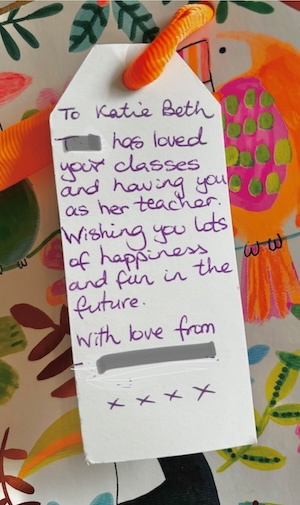 To Katie Beth
has loved
your classes
and having you
as her teacher.
Wishing you lots
of happiness
and fun in the
future.
With love from
x x x x